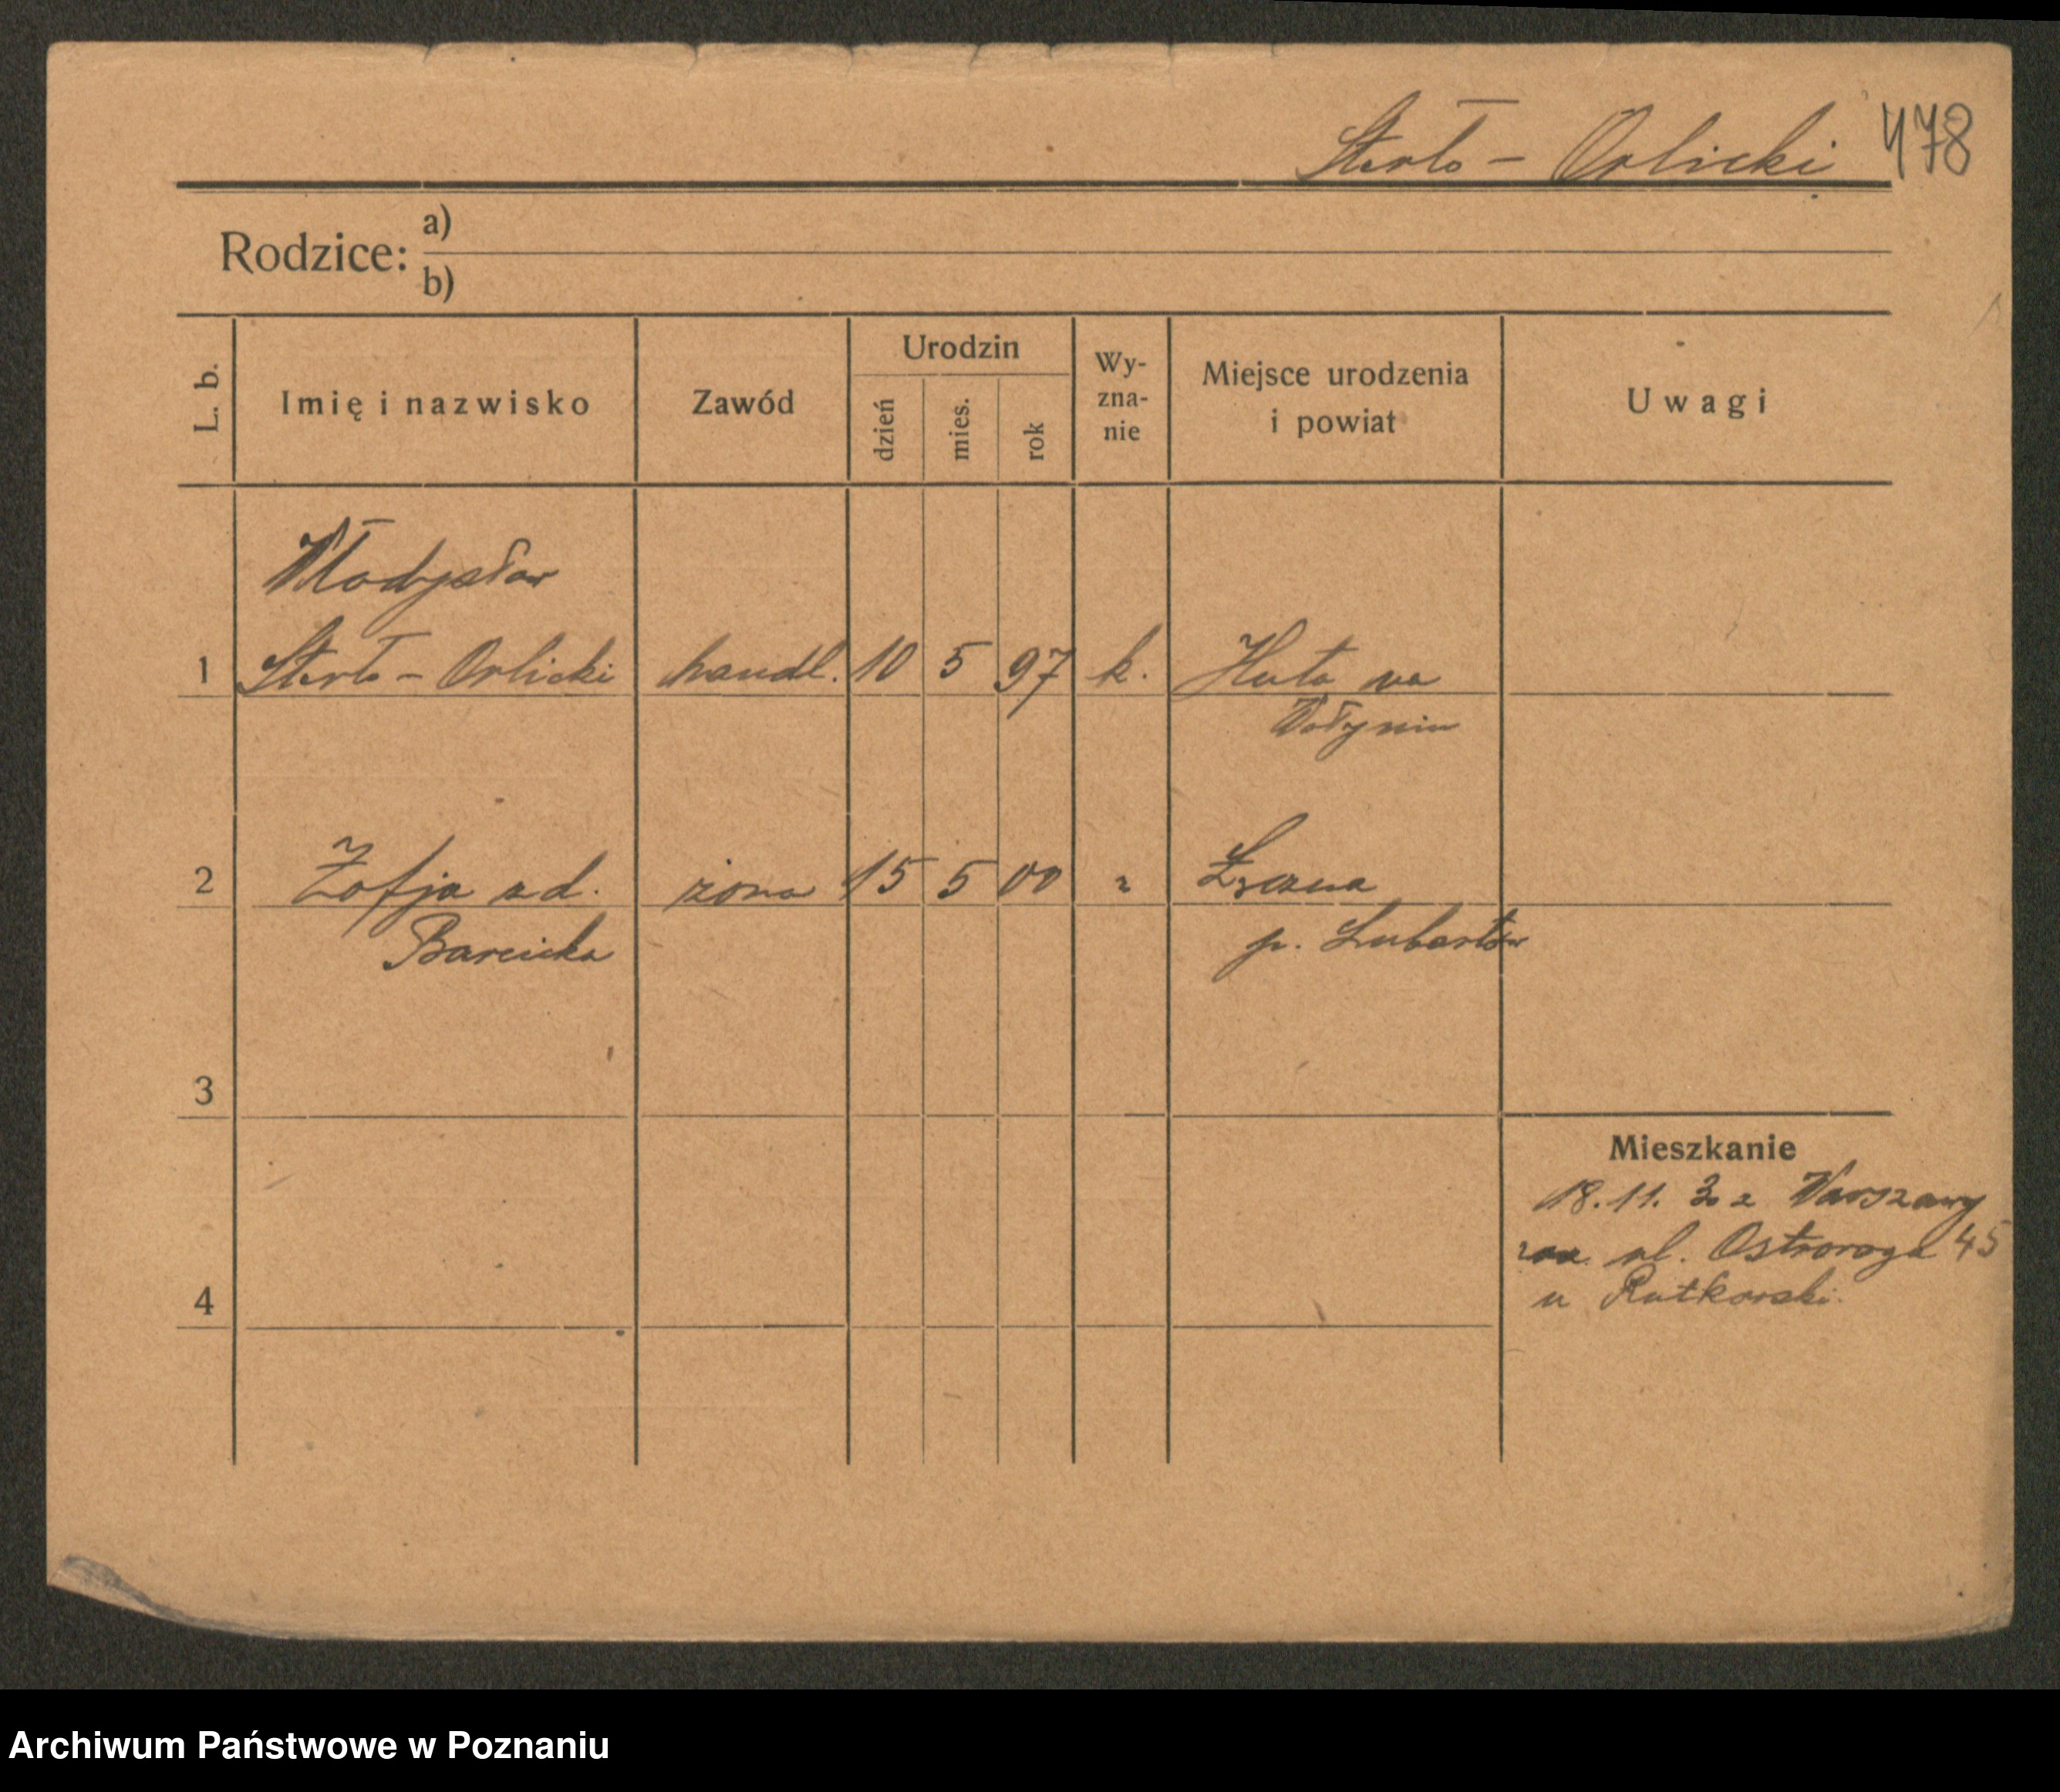 Sterło - Orlicki 478
Rodzice:
a)
b)
L. b.
Imię i nazwisko
Zawód
Urodzin
dzień
mies.
rok
Wy-
zna-
nie
Miejsce urodzenia
i powiat
Uwagi
Władysław
1 Sterło - Orlicki handl. 10 5 97 k. Huta na
Wołyniu
2 Zofja z d. żona 15 5 00 "
Barcicka p. Lubartów
3
4
Mieszkanie
18.11. 30 z Warszawy
ul. Ostroroga 45
u Rutkowski.
Archiwum Państwowe w Poznaniu